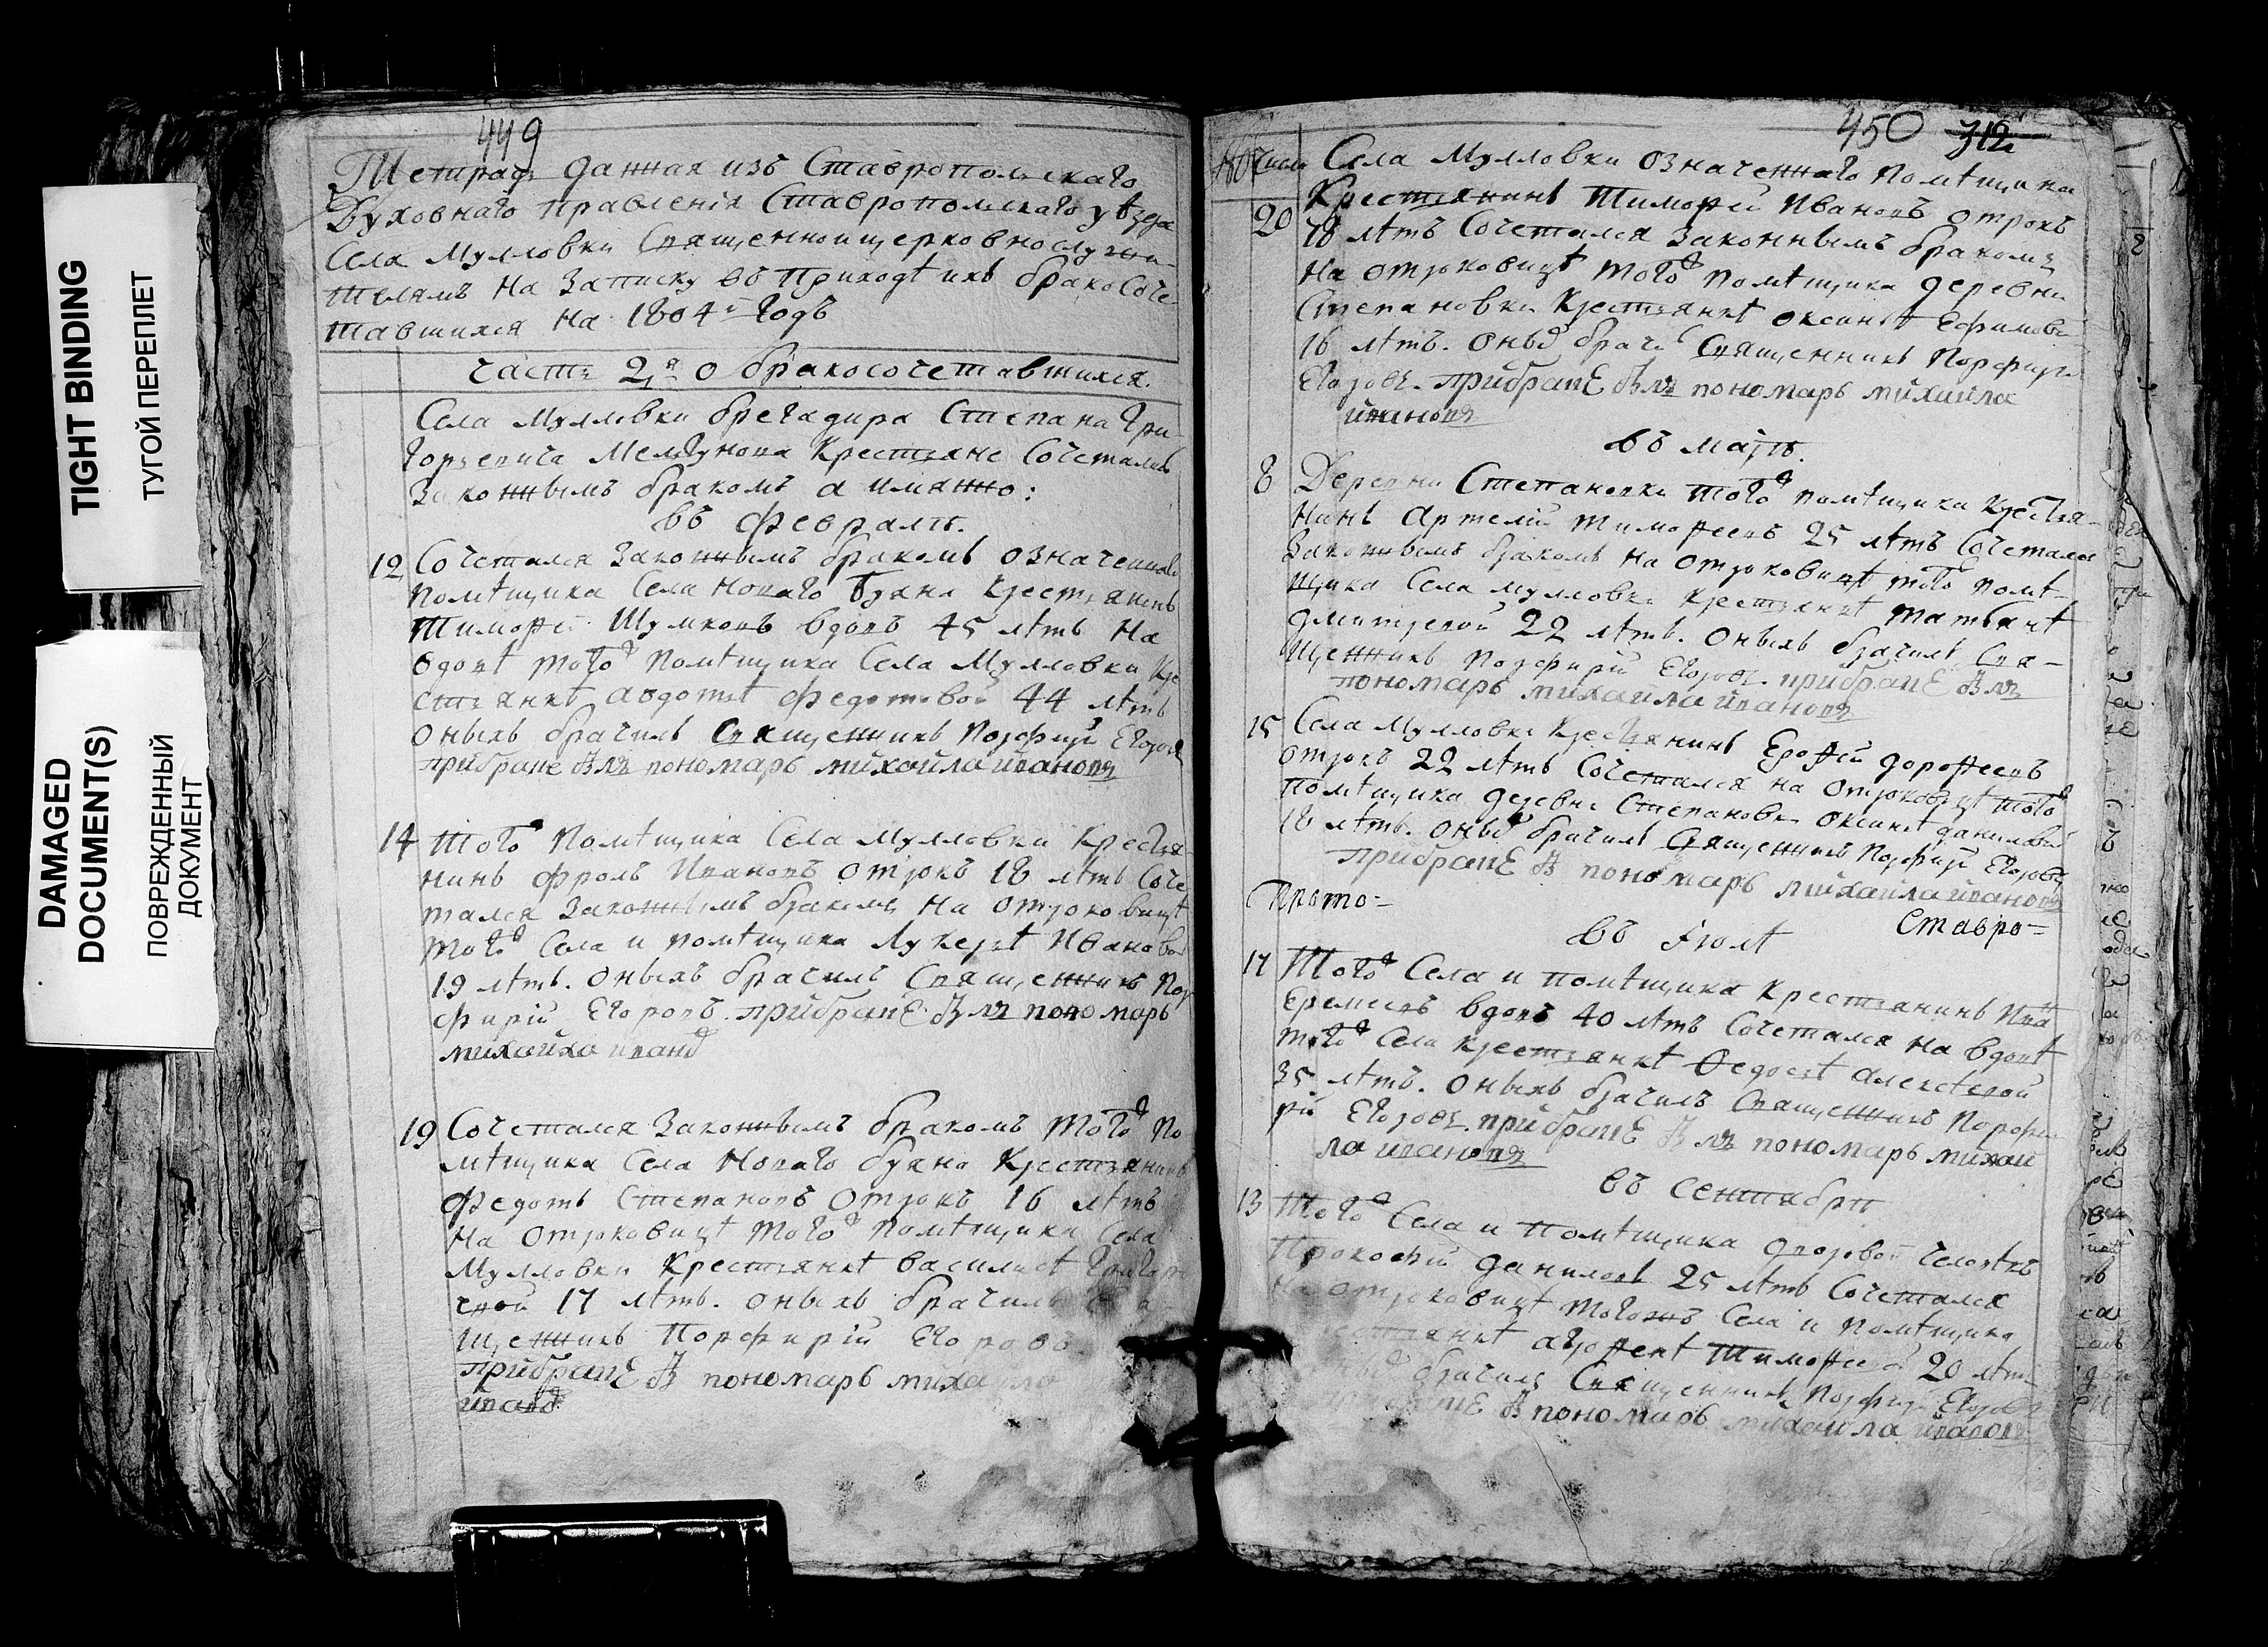 TIGHT BINDING
ТУГОЙ ПЕРЕПЛЕТ
DAMAGED
DOCUMENT(S)
ПОВРЕЖДЕННЫЙ
ДОКУМЕНТ
449
Тетрадь данная изъ Ставропольскаго
Духовнаго правленія Ставропольскаго уѣзда
Села Мулловки Священноицерковнослужи-
телямъ на Записку въ приходѣ ихъ бракосоче-
тавшихся на 1804й годъ
часть 2я о бракосочетавшихся.
Села Мулловки брегадира Степана Гри-
горьевича Мелгунова Крестьяне Сочетались
Законнымъ бракомъ а имянно:
въ февралѣ.
12 Сочетался Законнымъ бракомъ означеннаго
помѣщика Села Новаго Буяна Крестьянинъ
Тимофей Шумковъ вдовъ 45 лѣтъ на
вдовѣ того помѣщика Села Мулловки Кре
стьянкѣ авдотьѣ федотовой 44 лѣтъ
оныхъ брачилъ Священникъ Порфирій Егоровъ
прибраке былъ пономарь михайла ивановъ
14 Того помѣщика Села Мулловки Крестья-
нинъ фролъ Ивановъ отрокъ 18 лѣтъ Соче
тался Законнымъ бракомъ на отроковицѣ
того Села и помѣщика Лукерьѣ Ивановой
19 лѣтъ. оныхъ брачилъ Священникъ Пор
фирій Егоровъ. прибраке былъ пономарь
михайла иванов
19 Сочетался Законнымъ бракомъ того по
мѣщика Села Новаго буяна Крестьянинъ
федотъ Степановъ отрокъ 16 лѣтъ
на отроковицѣ того помѣщика Села
Мулловки Крестьянкѣ василисѣ Григорь
евой 17 лѣтъ. оныхъ брачилъ Свя
щенникъ Порфирій Егоровъ
прибраке б пономарь михайла
иванов
450 312
число Села Мулловки означеннаго помѣщика
20 Крестьянинъ Тимофей Ивановъ отрокъ
18 лѣтъ Сочетался Законнымъ бракомъ
на отроковицѣ того помѣщика деревни
Степановки Крестьянкѣ оксиньѣ Ефимовой
16 лѣтъ. оныхъ брачилъ Священникъ Порфирій
Егоровъ. прибраке былъ пономарь михайла
ивановъ
въ маіѣ.
8 Деревни Степановки того помѣщика крестья-
нинъ артемій тимофеевъ 25 лѣтъ Сочетался
Законнымъ бракомъ на отроковицѣ того помѣ-
щика Села мулловки крестьянкѣ татьянѣ
дмитревой 22 лѣтъ. оныхъ брачилъ Свя-
щенникъ порфирій Егоровъ. прибраке былъ
пономарь михайла ивановъ
15 Села Мулловки Крестьянинъ Ерофей дорофеевъ
отрокъ 22 лѣтъ Сочетался на отроковицѣ того
помѣщика деревни Степановки оксиньѣ даниловой
18 лѣтъ. оныхъ брачилъ Священникъ Порфирій Егоровъ
прибраке б пономарь михайла ивановъ
Прото-
Ставро-
въ Іюлѣ
17 Того Села и помѣщика крестьянинъ Иванъ
Еремеевъ вдовъ 40 лѣтъ Сочетался на вдовѣ
того Села крестьянкѣ Ѳедосьѣ алексѣевой
35 лѣтъ. оныхъ брачилъ Священникъ Порфи
рій Егоровъ. прибраке былъ пономарь михай
ла ивановъ
въ сентябрѣ
13 Того Села и помѣщика дворовой человѣкъ
Прокофій даниловъ 25 лѣтъ Сочетался
на отроковицѣ тогожъ Села и помѣщика
крестьянкѣ Тимофеевой 20 лѣтъ
брачилъ Священникъ Порфирій Егоровъ
прибраке б пономарь михайла ивановъ